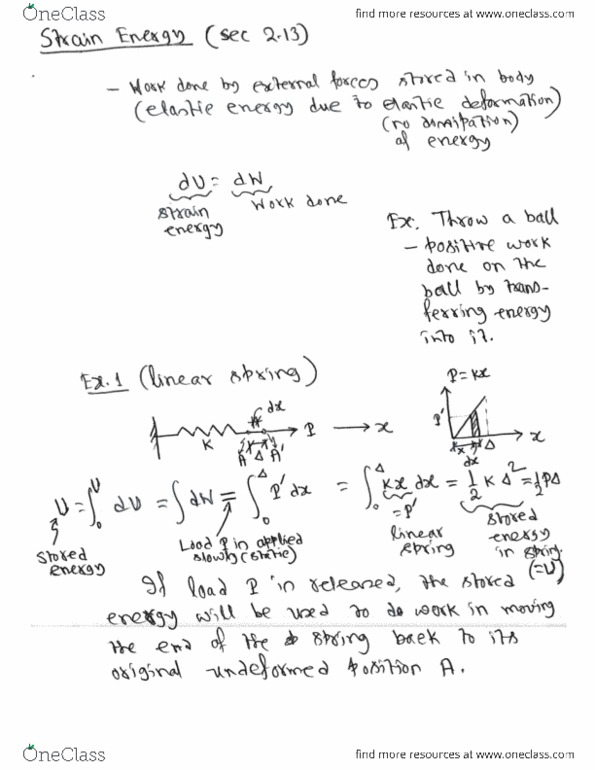 OneClass
find more resources at www.oneclass.com
Strain Energy (sec 2.13)
- Work done by external forces stored in body
(elastic energy due to elastic deformation)
(no dissipation)
of energy
dU = dW
strain energy
Work done
Ex: Throw a ball
- positive work
done on the
ball by trans-
ferring energy
into it.
Ex.1 (linear spring)
P=Kx
dx
K
P
x
A Δ A'
P'
x
Δ
dx
x
U = ∫₀ᵁ dU = ∫dW = ∫₀^Δ P'dx = ∫₀^Δ Kx dx = 1/2 K Δ² = 1/2 PΔ
=P'
stored
energy
Load P in applied
slowly (static)
linear
spring
stored
energy
in spring.
(=U)
If load P in released, the stored
energy will be used to do work in moving
the end of the spring back to its
original undeformed position A.
OneClass
find more resources at www.oneclass.com